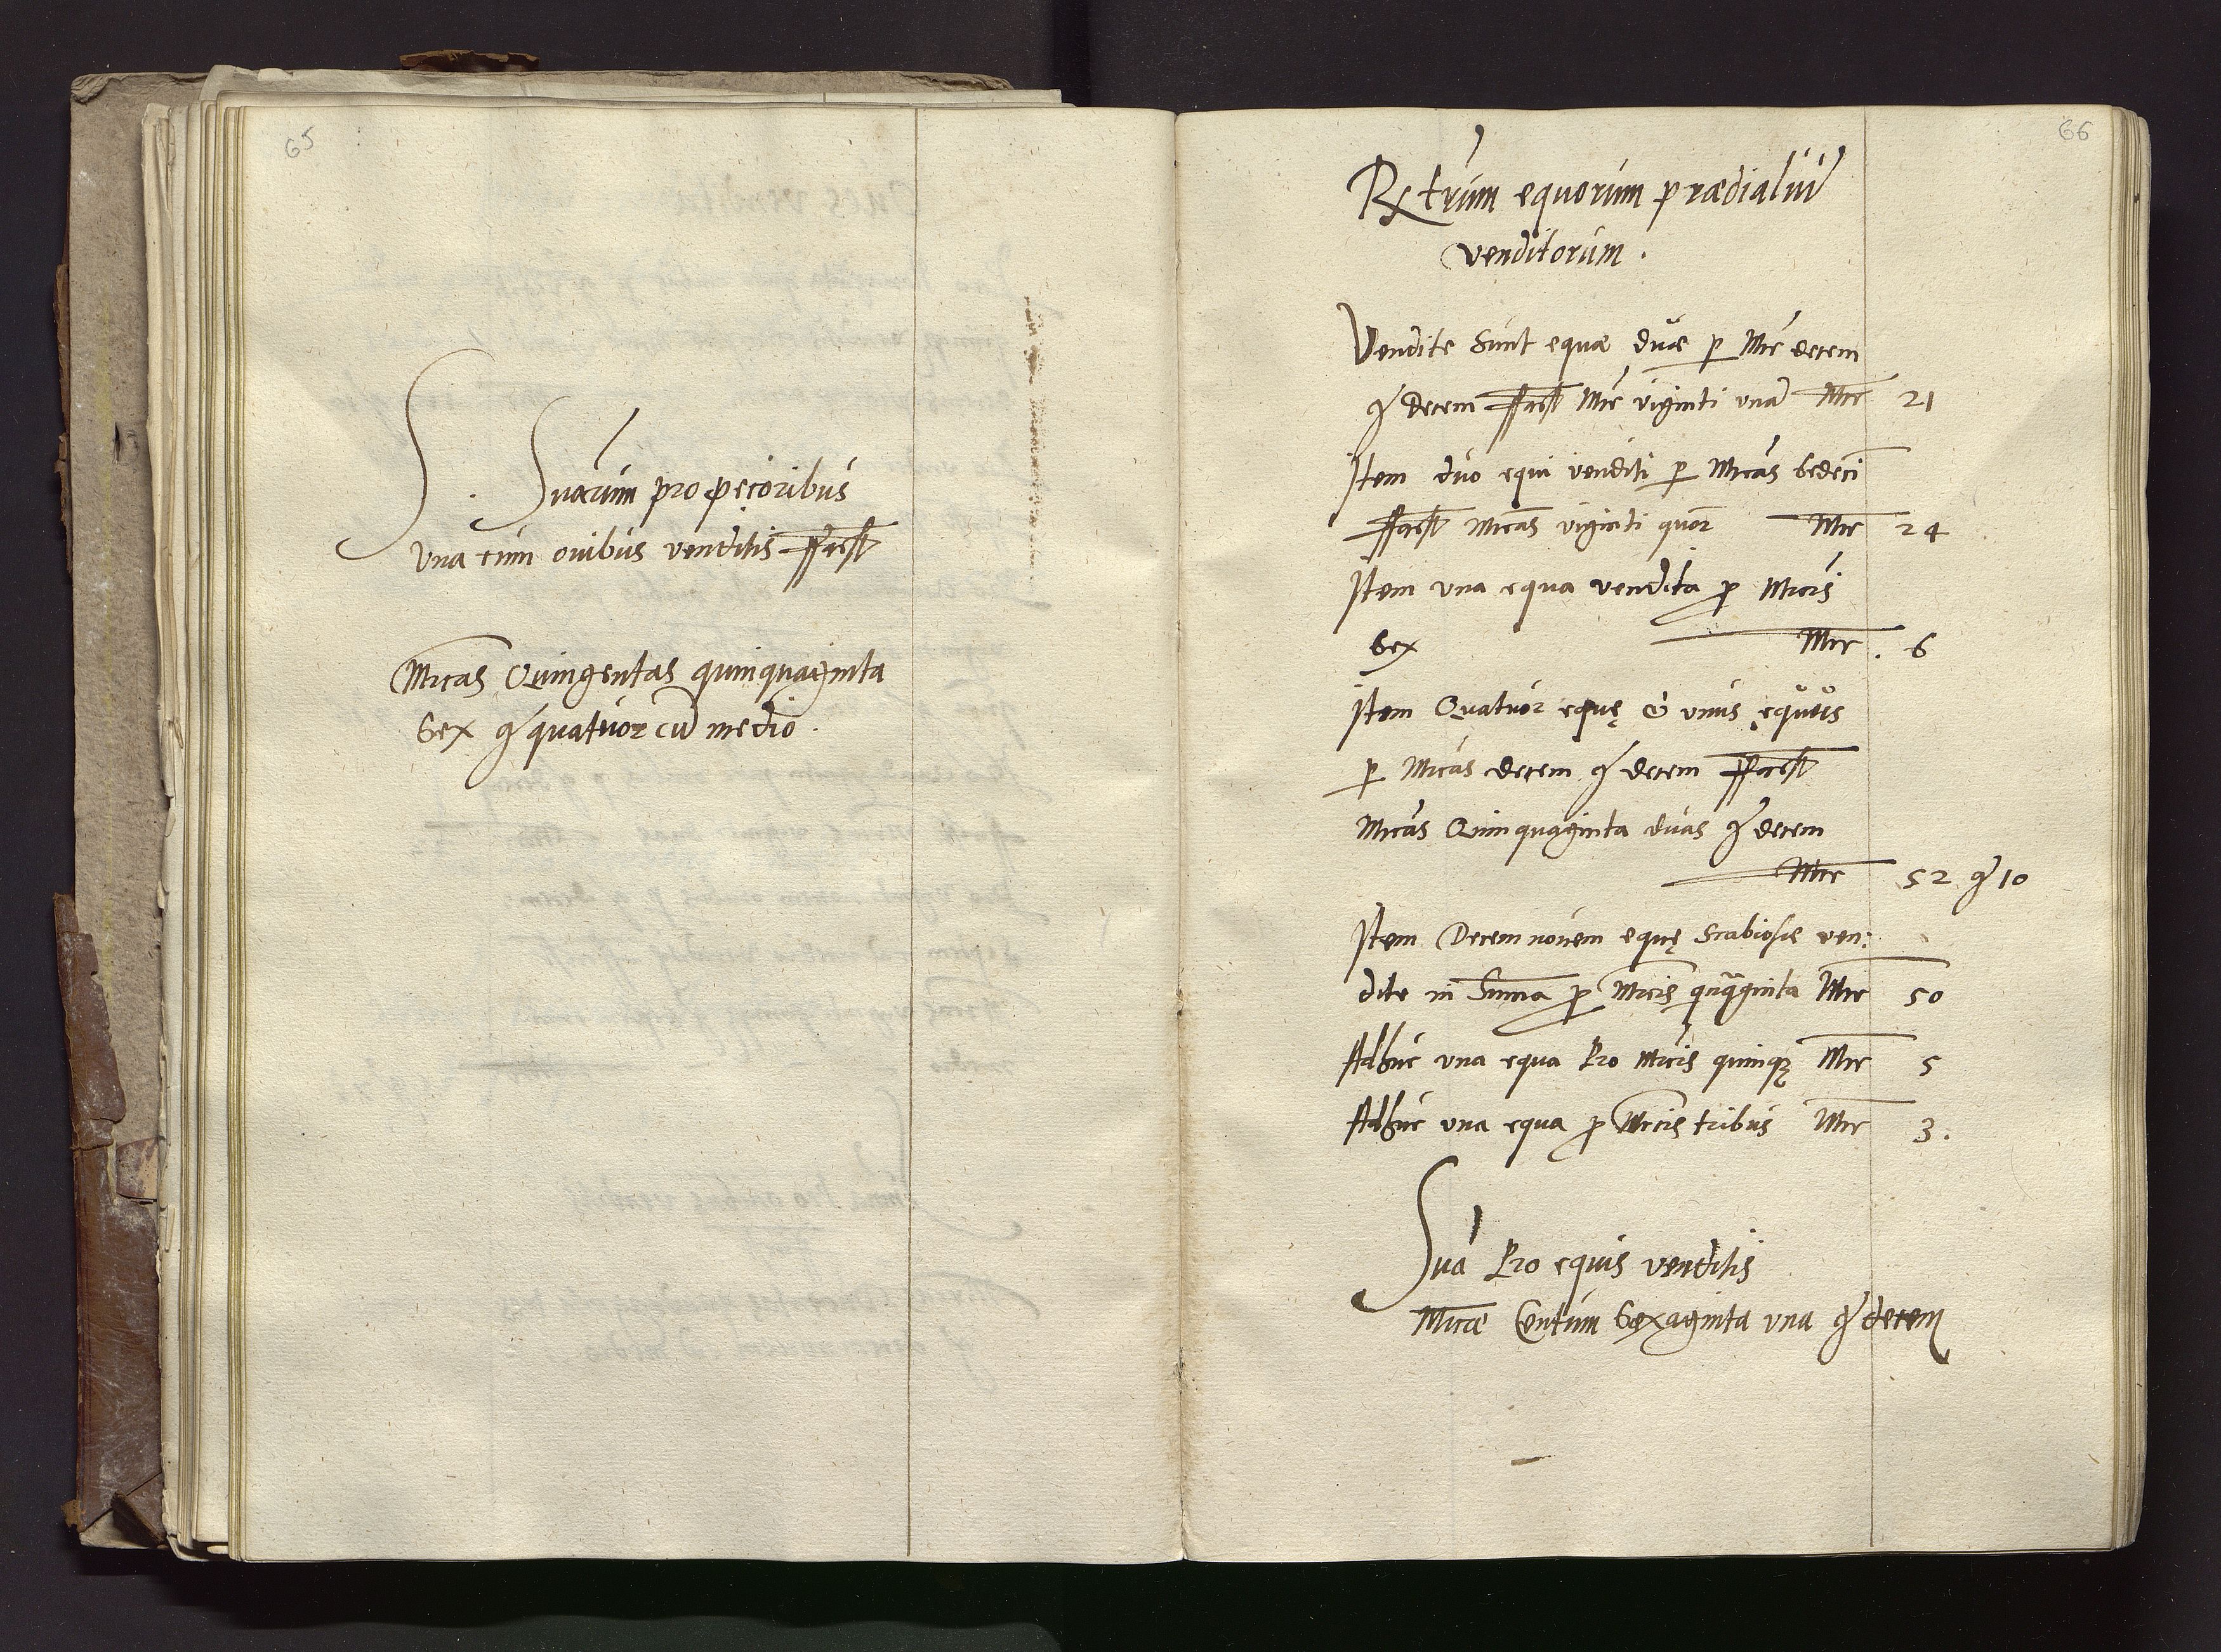 65
S. Suarum pro pecoribus
una cum ovibus venditis ffacit
Mrcas Quingentas quinquaginta
Sex gr quatuor cū medio.
66
Rtrum equorum prædialiū
venditorum.
Vendite sunt equæ duæ p Mrc decem
gr decem ffacit Mrc viginti unā Mrc 21
Item duo equi venditi p Mrcas sedecī
ffacit Mrcas viginti quor Mrc 24
Item una equa vendita p Mrcis
Sex Mrc. 6
Item Quatuor equę & unus equus
p Mrcas decem gr decem ffacit
Mrcas Quinquaginta duas gr decem
Mrc 52 gr 10
Item Decemnovem equę scabiosæ ven:
dite in Summa p Mrcis qnqginta Mrc 50
Adhuc una equa Pro Mrcis quinqꝫ Mrc 5
Adhuc una equa p Mrcis tribus Mrc 3.
Sua Pro equis venditis
Mrcæ Centum Sexaginta una gr decem